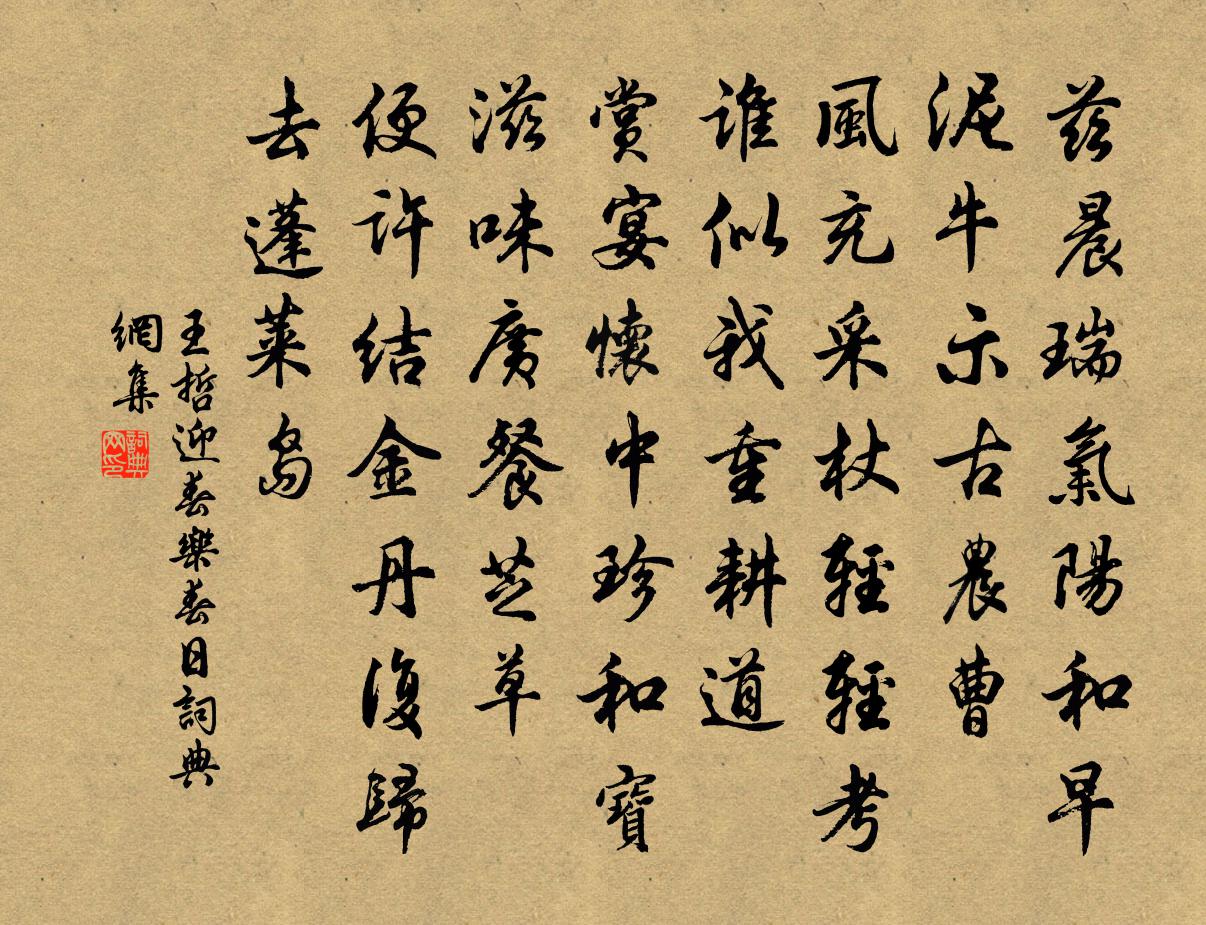 茲晨瑞氣陽和早
泥牛示古農曹
風充采杖輕輕考
誰似我重耕道
賞宴懷中珍和寶
滋味廣餐芝草
便許結金丹復歸
去蓬萊島
王哲迎春樂春日詞典
網集
詞典
网印